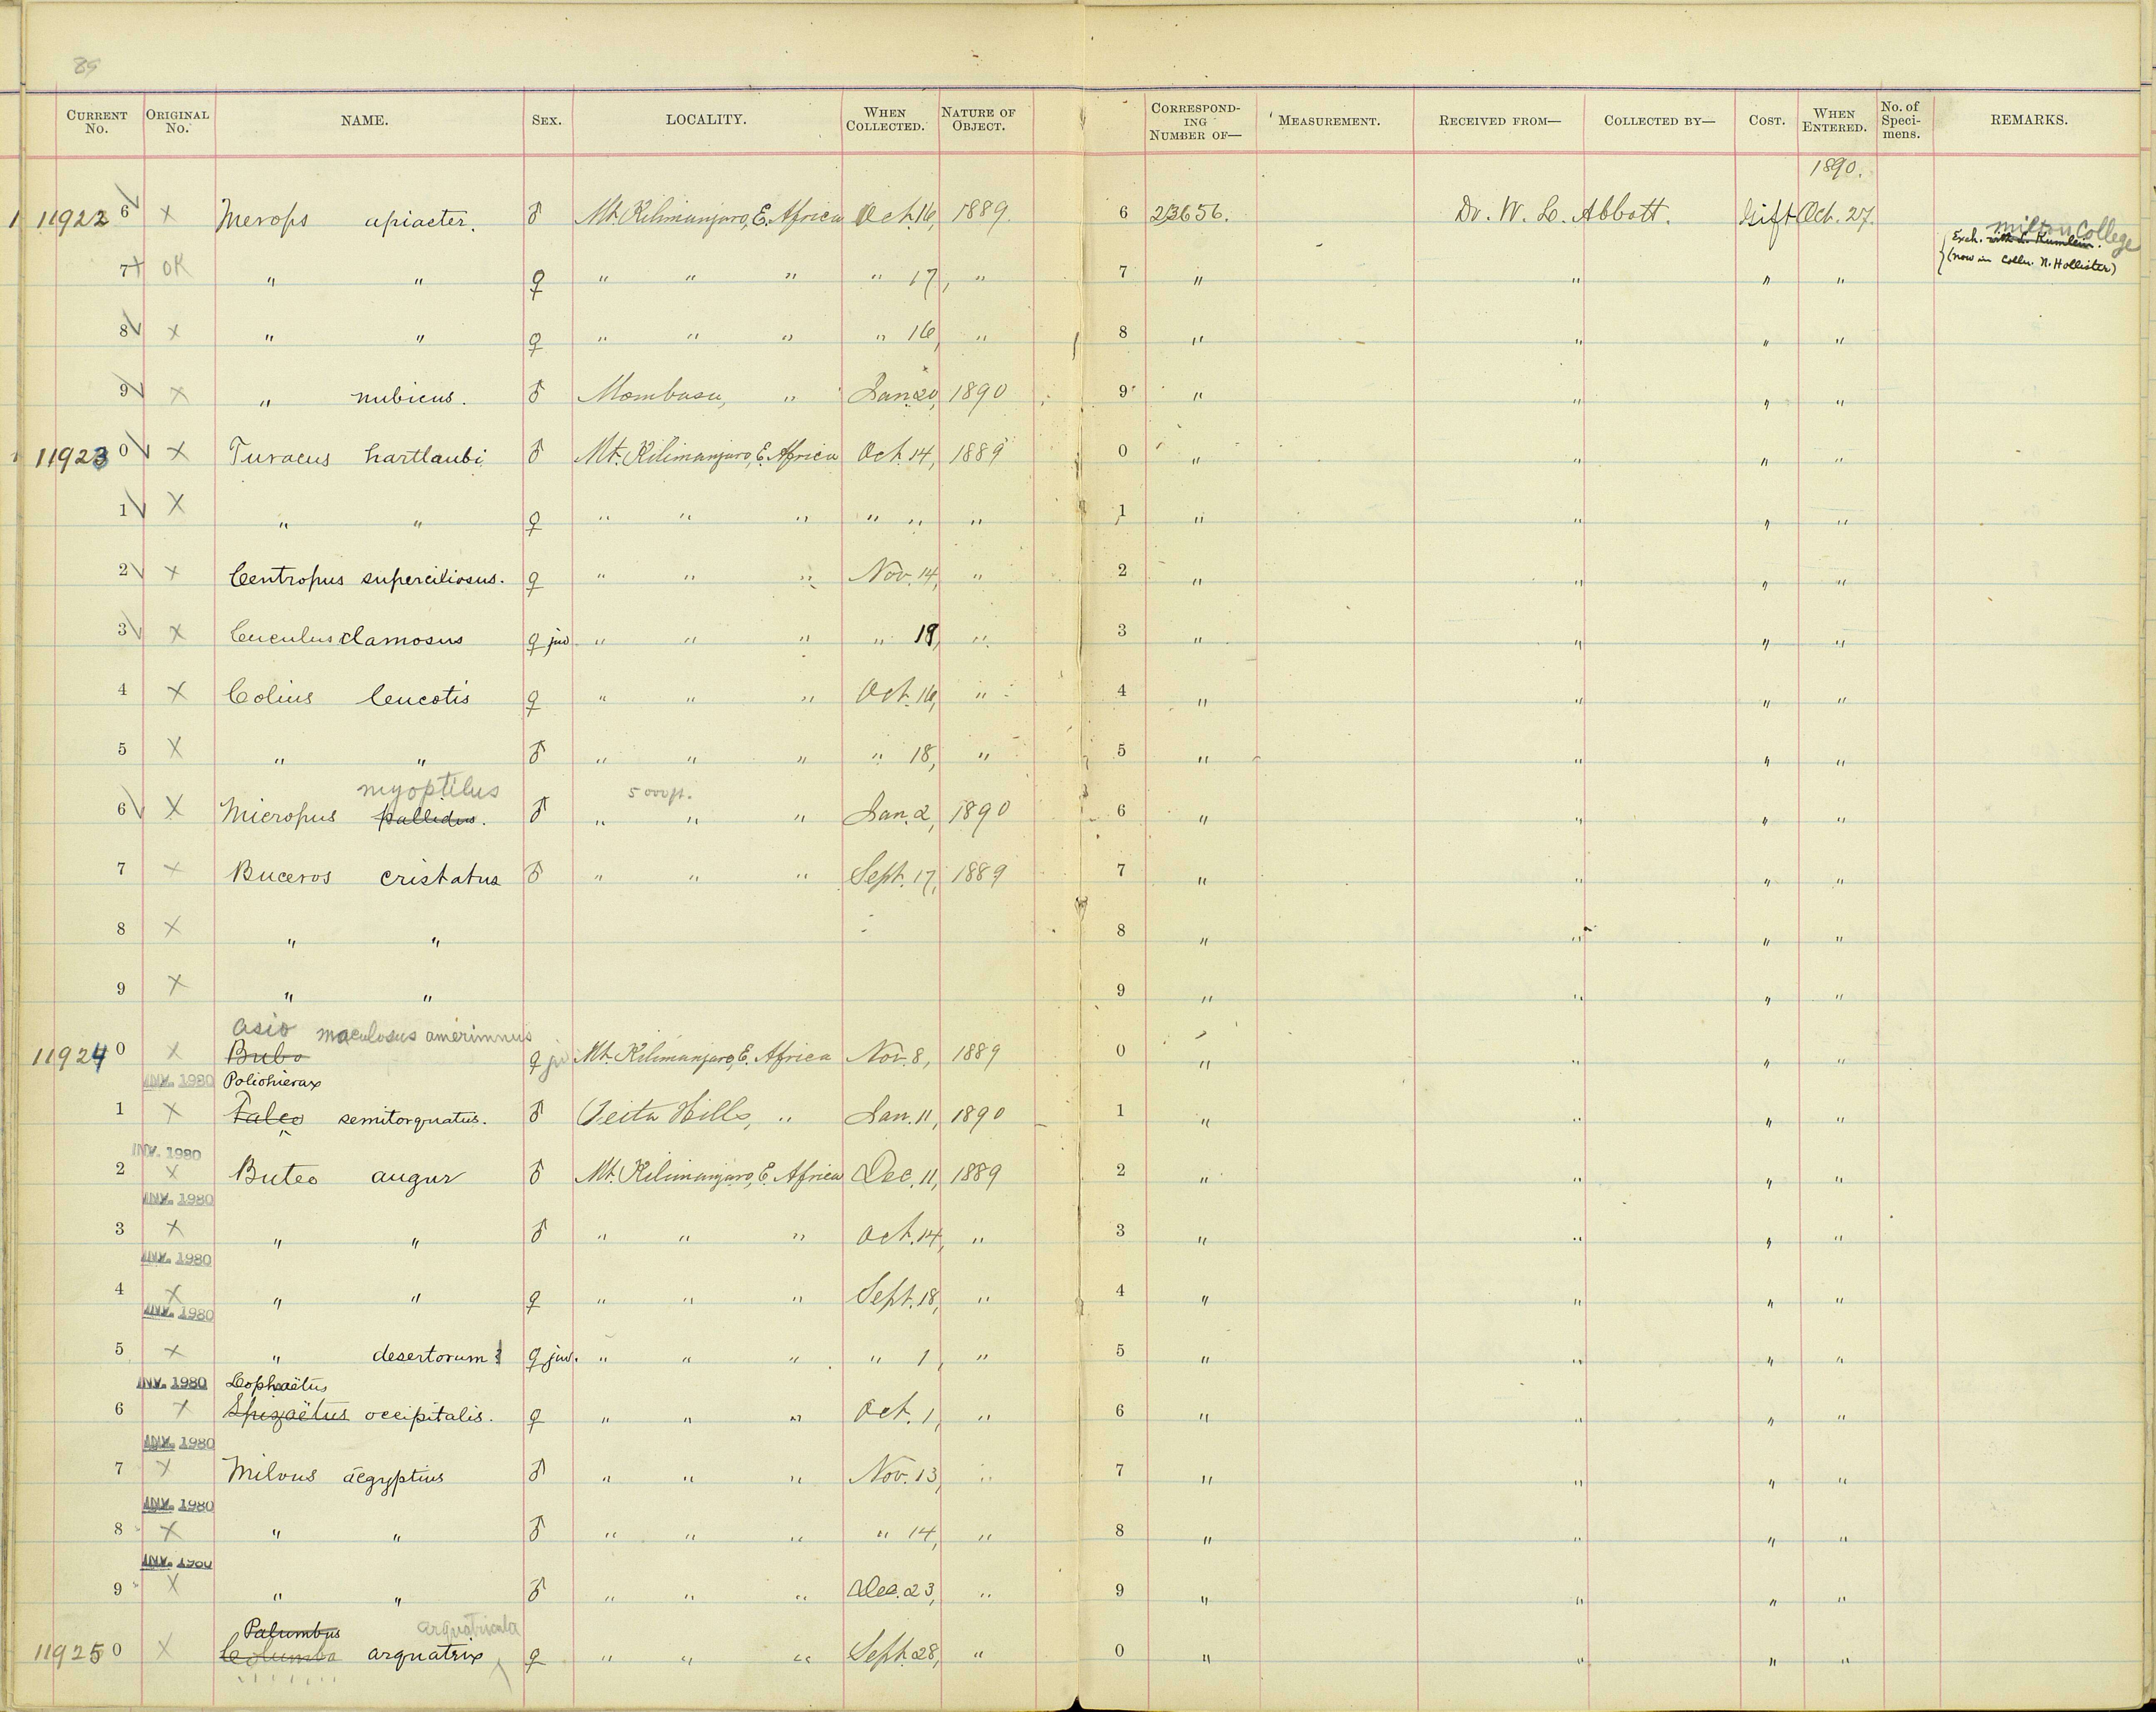 89
CURRENT No. ORIGINAL No. NAME. SEX. LOCALITY. WHEN COLLECTED. NATURE OF OBJECT. CORRESPONDING NUMBER OF— MEASUREMENT. RECEIVED FROM— COLLECTED BY— COST. WHEN ENTERED. No. of Specimens. REMARKS.
1890.
11922 6 x Merops apiaster. ♂ Mt. Kilimanjaro, E. Africa Oct. 16, 1889. 6 23656. Dr. W. L. Abbott. Gift Oct. 27.
Milton College
Exch. with L. Kumlein.
(now in colln. N. Hollister)
7 x OK " " ♀ " " " " 17, " 7 " " " "
8 x " " ♀ " " " " 16, " 8 " " " "
9 x " nubicus. ♂ Mombasa, " Jan. 20, 1890 9 " " " "
11923 0 x Turacus hartlaubi ♂ Mt. Kilimanjaro, E. Africa Oct. 14, 1889 0 " " " "
1 x " " ♀ " " " " " " 1 " " " "
2 x Centropus superciliosus. ♀ " " " Nov. 14, " 2 " " " "
3 x Cuculus clamosus ♀ juv. " " " " 19, " 3 " " " "
4 x Colius leucotis ♀ " " " Oct. 16, " 4 " " " "
5 x " " ♂ " " " " 18, " 5 " " " "
myoptilus 5000 ft.
6 x Micropus pallidus. ♂ " " " Jan. 2, 1890 6 " " " "
7 x Buceros cristatus ♂ " " " Sept. 17, 1889 7 " " " "
8 x " " 8 " " " "
9 x " " 9 " " " "
Asio maculosus amerimnus
11924 0 x Bubo ♀ Mt. Kilimanjaro, E. Africa Nov. 8, 1889 0 " " " "
INV. 1980 Poliohierax
1 x Falco semitorquatus. ♂ Teita Hills, " Jan. 11, 1890 1 " " " "
INV. 1980
2 x Buteo augur ♂ Mt. Kilimanjaro, E. Africa Dec. 11, 1889 2 " " " "
INV. 1980
3 x " " ♂ " " " Oct. 14, " 3 " " " "
INV. 1980
4 x " " ♀ " " " Sept. 18, " 4 " " " "
INV. 1980
5 x " desertorum ♀ juv. " " " " 1, " 5 " " " "
INV. 1980 Lophaëtus
6 x Spizaëtus occipitalis. ♀ " " " Oct. 1, " 6 " " " "
INV. 1980
7 x Milvus ægyptius ♂ " " " Nov. 13, " 7 " " " "
INV. 1980
8 x " " ♂ " " " " 14, " 8 " " " "
INV. 1980
9 x " " ♂ " " " Dec. 23, " 9 " " " "
Palumbus arquatricula
11925 0 x Columba arquatrix ♀ " " " Sept. 28, " 0 " " " "